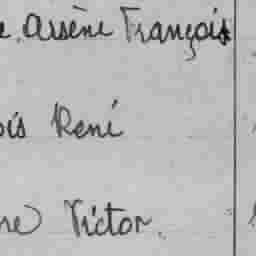 e, Arsène François
ois René
re Victor.